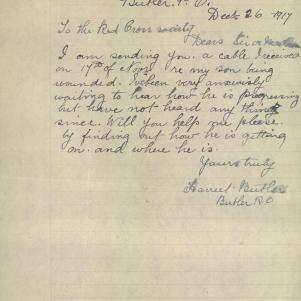 Butler P. O.
Dec 26 1917
To the Red Cross society
Dear Sir or Madam
I am sending you a cable I received
on 17th of Nov re my son being
wounded. been very anxiously
waiting to hear how he is progressing
but have not heard any thing
since. Will you help me please
by finding out how he is getting
on. and where he is.
Yours truly
Harriet Butler
Butler P.O